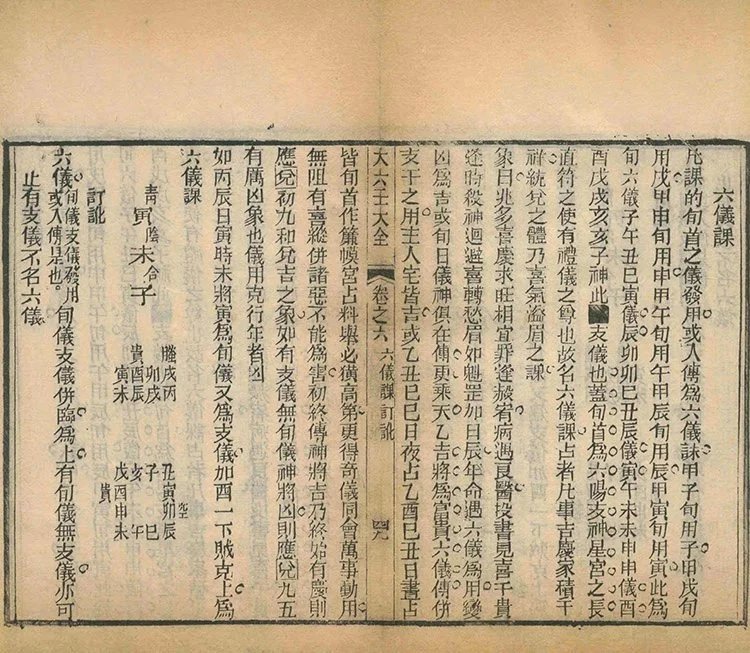 六儀課
凡課的旬首之儀發用或入傳爲六儀課甲子旬用子甲戌旬
用戌甲申旬用申甲午旬用午甲辰旬用辰甲寅旬用寅此爲
旬六儀子午丑巳寅儀辰卯卯巳丑辰儀寅午未未申申儀酉
酉戌戌亥亥子神此支儀也蓋旬首爲六陽支神星宮之長
直符之使有禮儀之尊也故名六儀課占者凡事吉慶家積千
祥統兌之體乃喜氣溢眉之課
象曰兆多喜慶求旺相宜罪逢赦宥病遇良醫投書見喜干貴
逢時殺神迴避喜轉愁眉如魁罡加日辰年命遇六儀爲用變
凶爲吉或旬日儀神俱在傳更乘天乙吉將爲富貴六儀傳併
支干之用主人宅皆吉或乙丑巳巳日夜占乙酉巳丑日晝占
大六壬大全
卷之六
六儀課 訂訛
四九
皆旬首作簾幙官占科舉必獲高第更得奇儀同會萬事動用
無阻有喜縱併諸惡不能爲害初終傳神將吉乃終始有慶則
應兌初九和兌吉之象如有支儀無旬儀神將凶則應兌九五
有厲凶象也儀用克行年者凶
如丙辰日寅時未將寅爲旬儀又爲支儀加酉一下賊克上爲
六儀課
青 寅陰 未合 子
螣戌丙
卯戌
貴酉辰
寅未
丑寅卯辰空
子 巳
亥 午
戌酉申未
貴
訂訛
六儀旬儀支儀發用或入傳是也旬儀支儀併臨爲上有旬儀無支儀亦可
止有支儀不名六儀